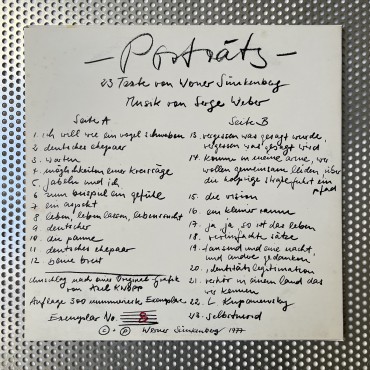 - Porträts -
23 Texte von Werner Sinkenberg
Musik von Serge Weber
Seite A
1. ich will wie ein vogel schweben
2. deutsches ehepaar
3. warten
4. möglichkeiten einer kreissäge
5. jabeln und ich
6. zum beispiel ein gefühl
7. ein aspekt
8. leben, leben lassen, lebenssucht
9. deutscher
10. die panne
11. deutsches ehepaar
12. braune brust
Umschlag nach einer Original Grafik
von Axel KNOPP
Auflage 300 nummerierte Exemplare
Exemplar No. 8
Seite B
13. vergessen was gesagt wurde,
vergessen was gesagt wird
14. komm in meine arme, wir
wollen gemeinsam leiden, über
die holprige straße führt ein
pfad
15. die vision
16. ein kleiner mann
17. ja, ja, so ist das leben
18. vernünftige sätze
19. tausend und eine nacht,
und andere gedanken
20. identitätslegitimation
21. verhör in einem land das
wir kennen
22. L. Krupanewsky
23. Selbstmord
© + ℗ Werner Sinkenberg 1977